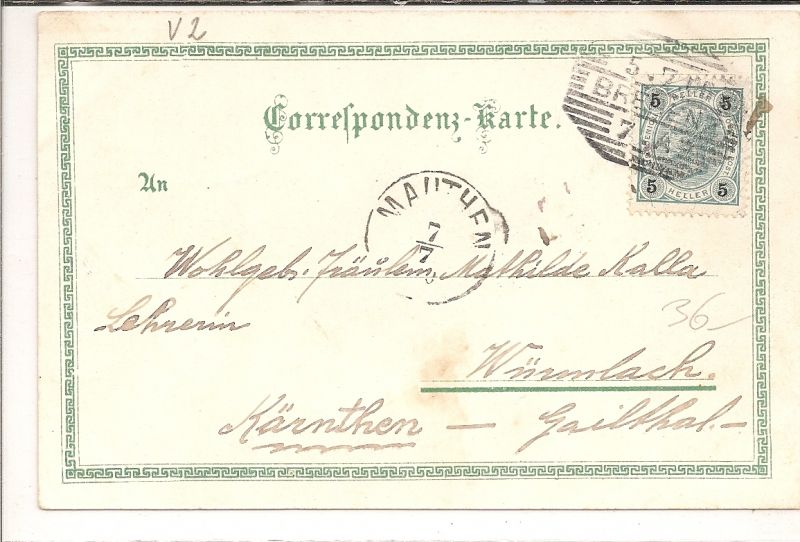 V2
Correspondenz-Karte.
5 5
HELLER
5 5
HELLER
An
MAUTHEN
7/7
Wohlgeb. Fräulein Mathilde Kalla
Lehrerin
36
Würmlach.
Kärnthen — Gailthal.—